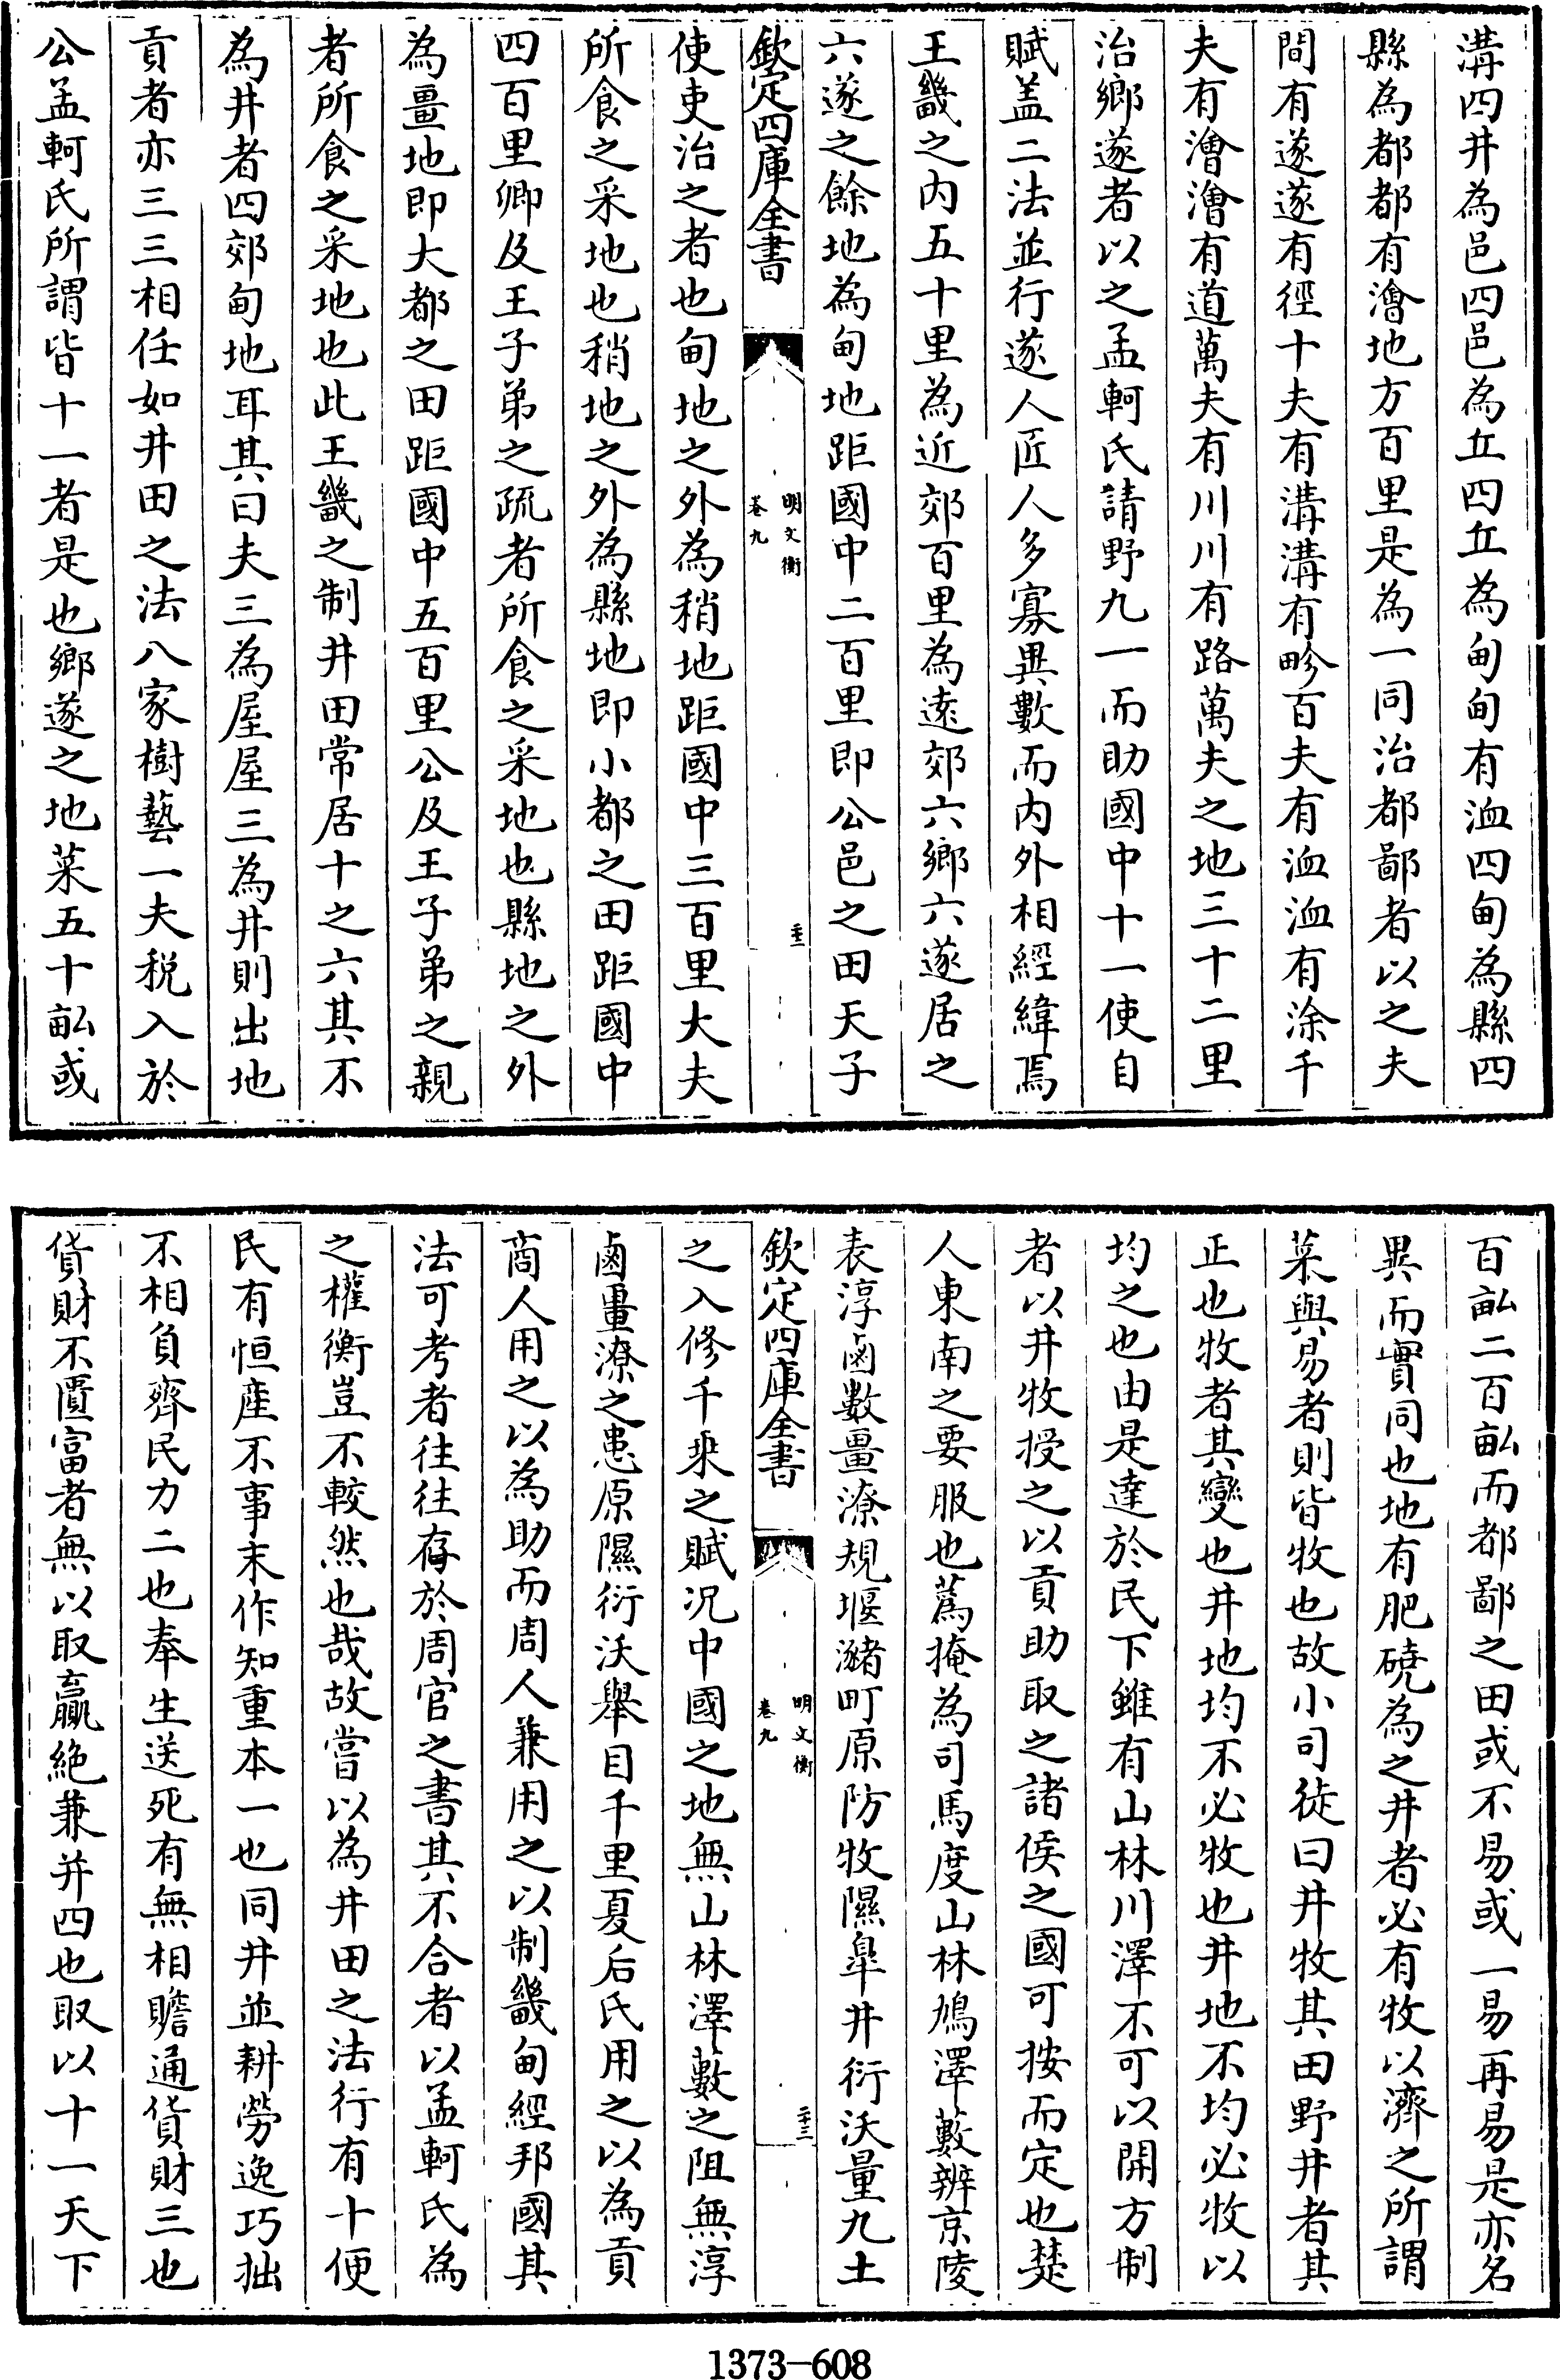 溝四井為邑四邑為丘四丘為甸甸有洫四甸為縣四
縣為都都有澮地方百里是為一同治都鄙者以之夫
間有遂遂有徑十夫有溝溝有畛百夫有洫洫有涂千
夫有澮澮有道萬夫有川川有路萬夫之地三十二里
治鄉遂者以之孟軻氏請野九一而助國中十一使自
賦盖二法並行遂人匠人多寡異數而内外相經緯焉
王畿之内五十里為近郊百里為逺郊六鄉六遂居之
六遂之餘地為甸地距國中二百里即公邑之田天子
欽定四庫全書
明文衡
卷九
使吏治之者也甸地之外為稍地距國中三百里大夫
所食之采地也稍地之外為縣地即小都之田距國中
四百里卿及王子弟之疏者所食之采地也縣地之外
為畺地即大都之田距國中五百里公及王子弟之親
者所食之采地也此王畿之制井田常居十之六其不
為井者四郊甸地耳其曰夫三為屋屋三為井則出地
貢者亦三三相任如井田之法八家樹藝一夫税入於
公孟軻氏所謂皆十一者是也鄉遂之地菜五十畝或
百畝二百畝而都鄙之田或不易或一易再易是亦名
異而實同也地有肥磽為之井者必有牧以濟之所謂
菜與易者則皆牧也故小司徒曰井牧其田野井者其
正也牧者其變也井地均不必牧也井地不均必牧以
均之也由是達於民下雖有山林川澤不可以開方制
者以井牧授之以貢助取之諸侯之國可按而定也楚
人東南之要服也蔿掩為司馬度山林鳩澤藪辨京陵
表淳鹵數畺潦規堰瀦町原防牧隰臯井衍沃量九土
欽定四庫全書
明文衡
卷九
二十三
之入修千乘之賦况中國之地無山林澤藪之阻無淳
鹵畺潦之患原隰衍沃舉目千里夏后氏用之以為貢
商人用之以為助而周人兼用之以制畿甸經邦國其
法可考者往往存於周官之書其不合者以孟軻氏為
之權衡豈不較然也哉故嘗以為井田之法行有十便
民有恒産不事末作知重本一也同井並耕勞逸巧拙
不相負齊民力二也奉生送死有無相贍通貨財三也
貨財不匱富者無以取贏絶兼并四也取以十一天下
1373—608